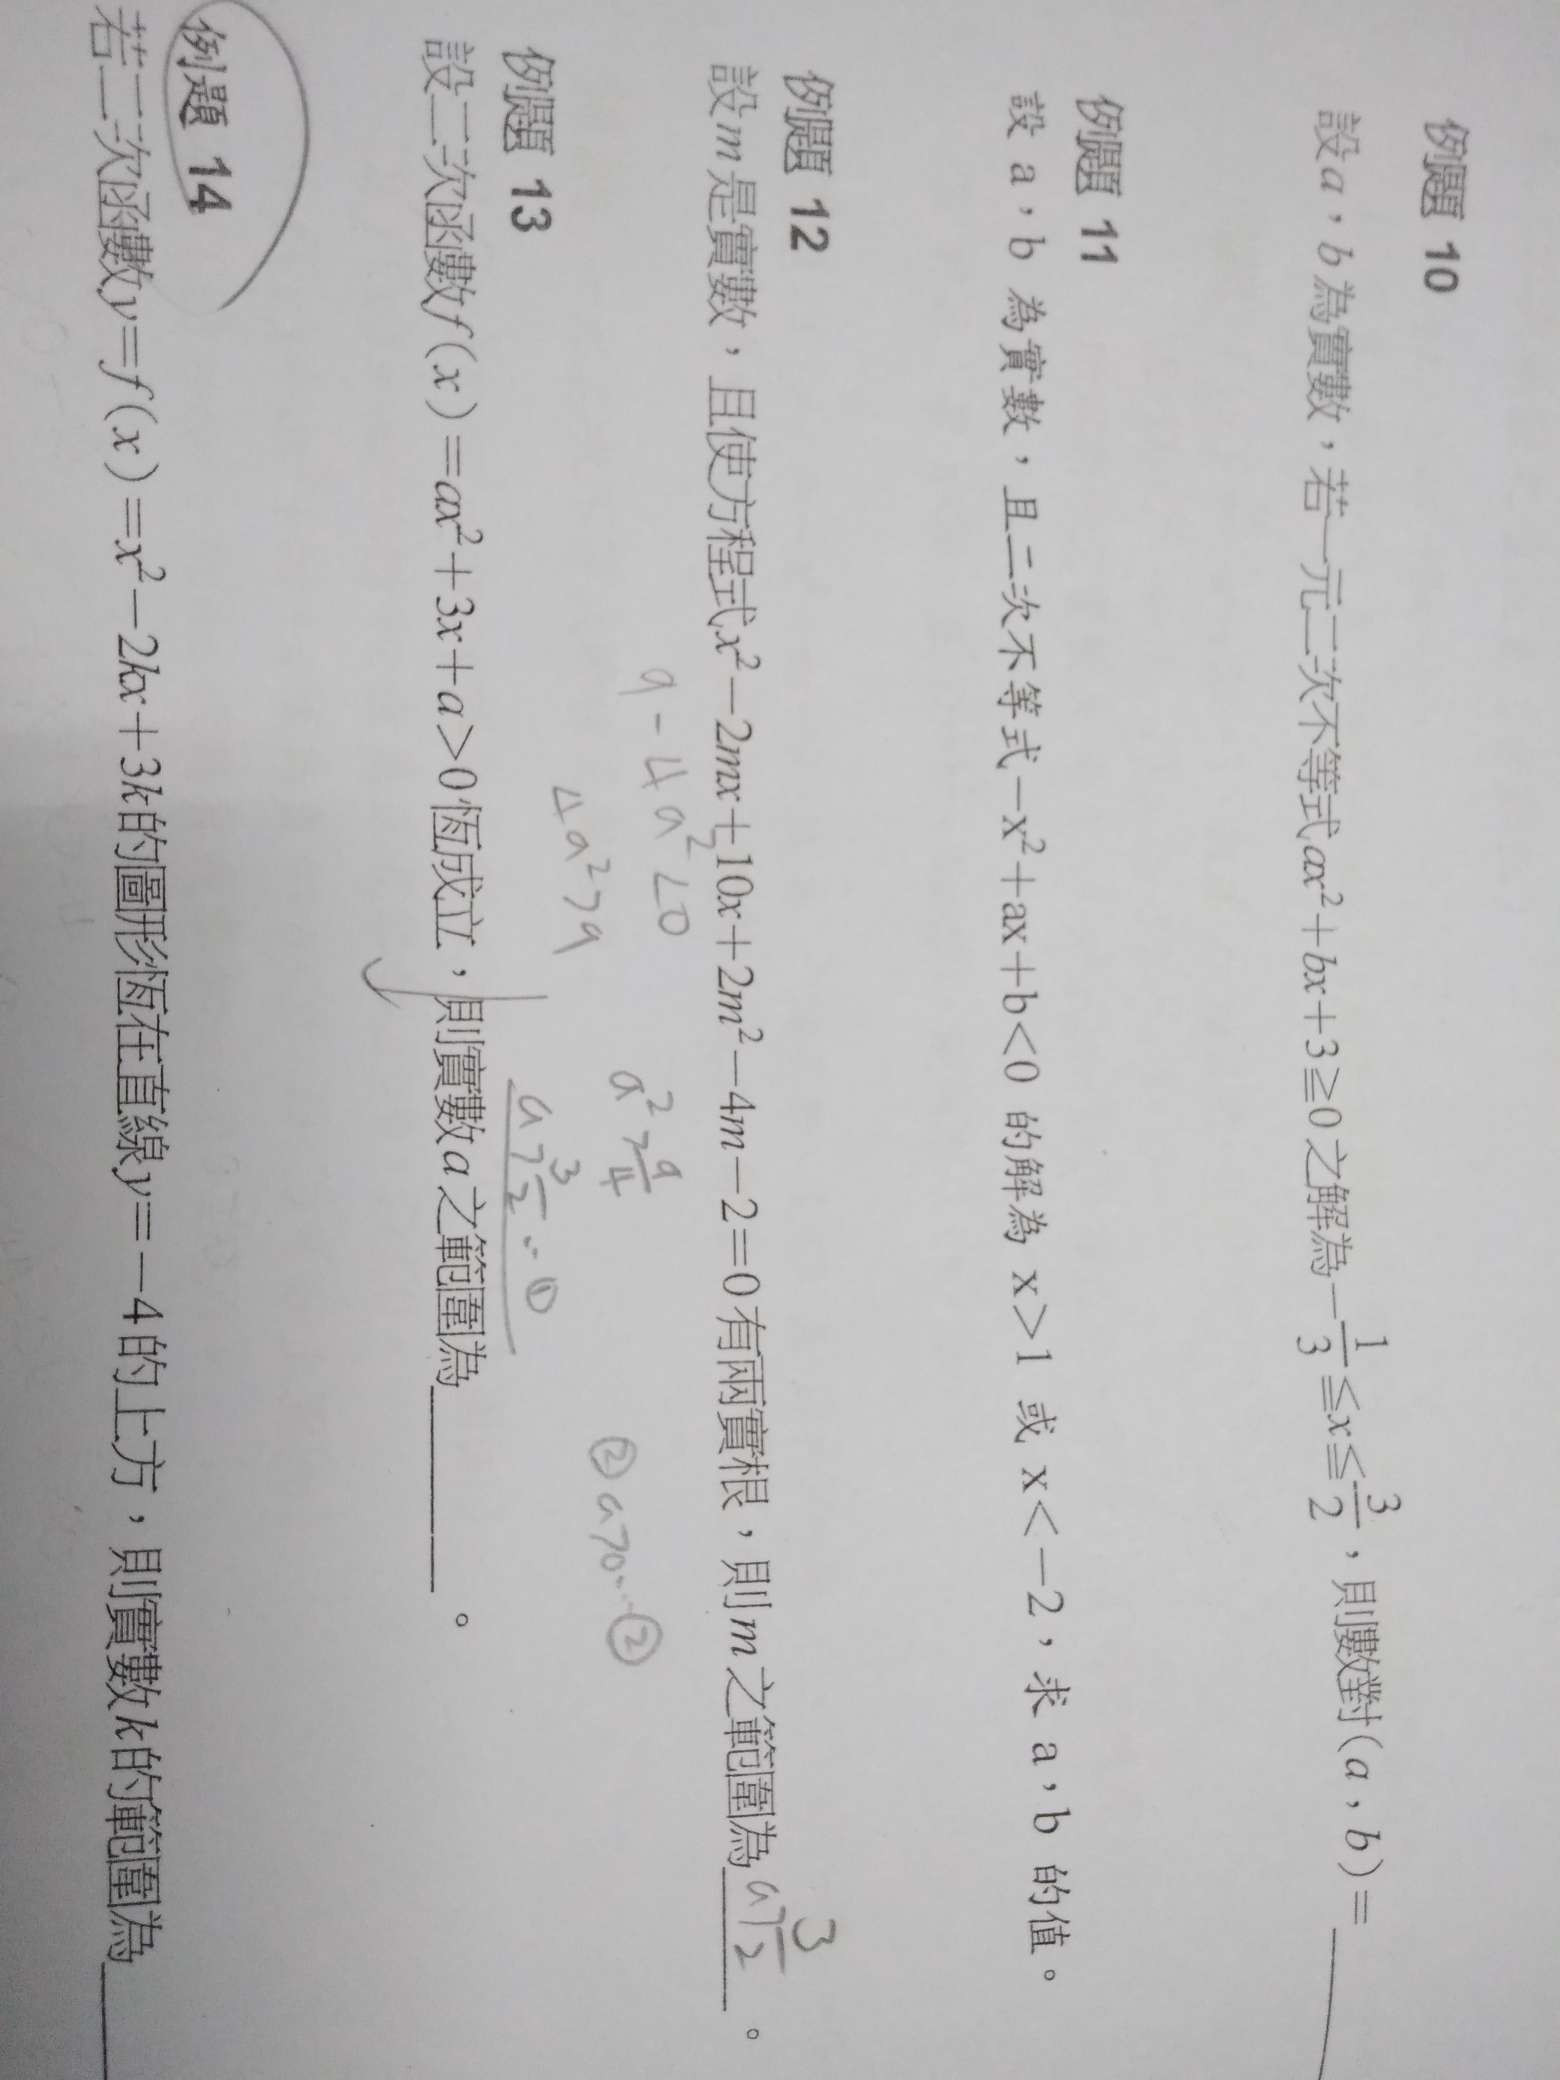 例題 10
設a，b為實數，若一元二次不等式ax²+bx+3≥0之解為-1/3≤x≤3/2，則數對(a，b)=______
例題 11
設 a，b 為實數，且二次不等式-x²+ax+b<0 的解為 x>1 或 x<-2，求 a，b 的值。
例題 12
設m是實數，且使方程式x²-2mx+10x+2m²-4m-2=0有兩實根，則m之範圍為a>3/2。
9-4a²<0
4a²>9
a²>9/4
a>3/2…①
②a>0…②
例題 13
設二次函數f(x)=ax²+3x+a>0恆成立，則實數a之範圍為______。
例題 14
若二次函數y=f(x)=x²-2kx+3k的圖形恆在直線y=-4的上方，則實數k的範圍為______